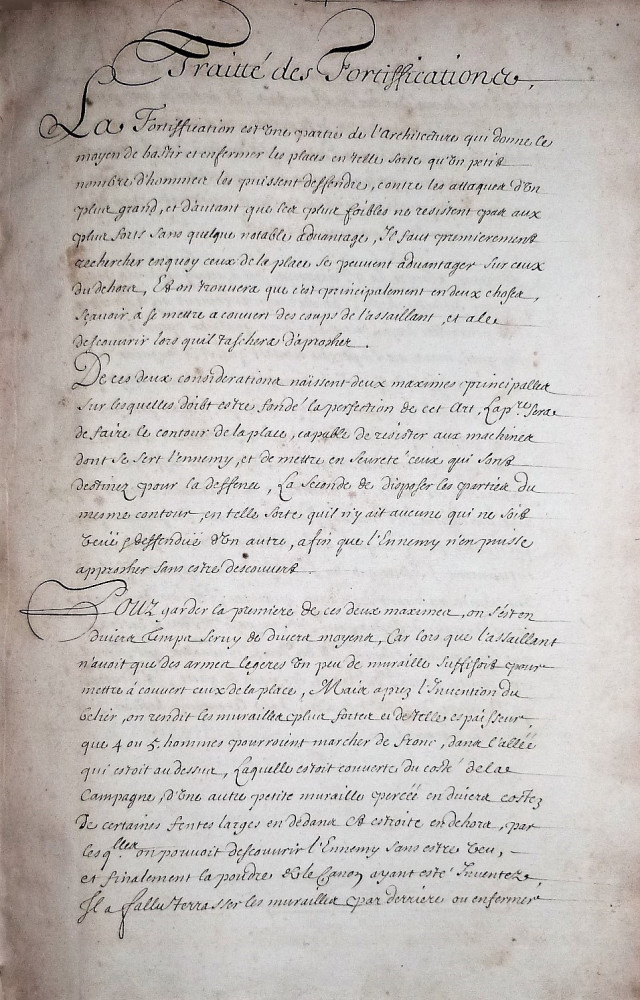 Traitté des Fortiffications.
La Fortiffication est Une partie de l'Architecture qui donne le
moyen de bastir et enfermer les places en telle sorte qu'Un petit
nombre d'hommes les puissent deffendre, contre les attaques d'Un
plus grand, et d'autant que les plus foibles ne resistent pas aux
plus forts sans quelque notable advantage, Il faut premierement
rechercher enquoy ceux de la place se peuvent advantager sur ceux
du dehors, Et on trouvera que c'est principalement en deux choses,
sçavoir à se mettre a couvert des coups de l'assaillant, et a le
descouvrir lors quil taschera d'aprocher.
De ces deux considerations naissent deux maximes principalles
sur lesquelles doibt estre fondé la perfection de cet Art, La pre. sera
de faire le contour de la place, capable de resister aux machines
dont se sert l'ennemy, et de mettre en seureté ceux qui sont
destinez pour la deffence, La seconde de disposer les parties du
mesme contour, en telle sorte quil n'y ait aucune qui ne soit
Veüe & deffendüe d'Un autre, afin que l'Ennemy n'en puisse
approcher sans estre descouvert.
Pour garder la premiere de ces deux maximes, on s'est en
divers temps servy de divers moyens, Car lors que l'assaillant
n'avoit que des armes legeres Un peu de muraille suffisoit pour
mettre à couvert ceux de la place, Mais aprez l'Invention du
belier, on rendit les murailles plus fortes et de telle espaisseur,
que 4 ou 5. hommes pourroient marcher de front, dans l'allée
qui estoit au dessus, Laquelle estoit couverte du costé de la
Campagne, d'Une autre petite muraille percée en divers costez
De certaines fentes larges en dedans Et estroite en dehors, par
lesq.lles on pouvoit descouvrir l'Ennemy sans estre Veu,
et finalement la poudre & le Canon ayant esté Inventez,
Il a fallu terrasser les murailles par derriere ou enfermer